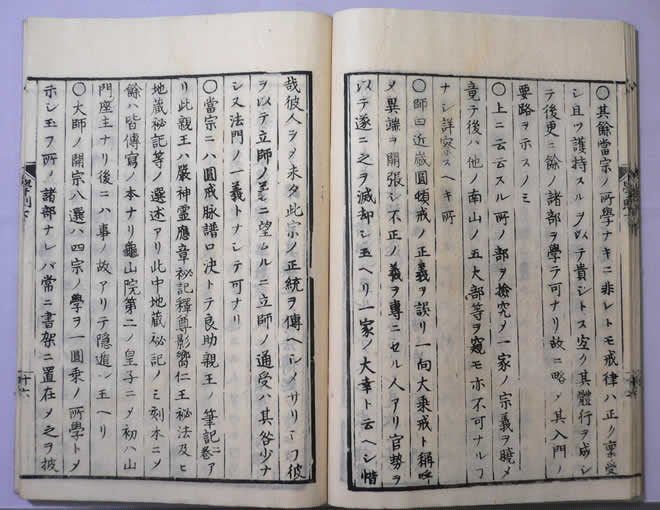 ○其餘當宗ノ所學ナキニ非レトモ戒律ハ正ク稟受
シ且ツ護持スルヲ以テ貴シトス宜ク其體行ヲ成シ
テ後更ニ餘ノ諸部ヲ學テ可ナリ故ニ略〆其入門ノ
要路ヲ示スノミ
○上ニ云云スル所ノ部ヲ撿究〆一家ノ宗義ヲ曉メ
竟テ後ハ他ノ南山ノ五大部等ヲ窺モ亦不可ナルヿ
ナシ詳察スヘキ所
○師曰近歳圓頓戒ノ正義ヲ誤リ一向大乗戒ト稱呼
〆異端ヲ開張シ不正ノ義ヲ專ニセル人アリ官勢ヲ
以テ遂ニ之ヲ滅却シ玉ヘリ一家ノ大幸ト云ヘシ惜
哉彼人ヲ〆未タ此宗ノ正統ヲ傳ヘシメサリヿヲ彼
ヲ以テ立師ノニ望ムルニ立師ノ通受ハ其咎少ナ
シ又法門ノ一義トナシテ可ナリ
○當宗ニハ圓戒脉譜口決トテ良助親王ノ筆記二巻ア
リ此親王ハ嚴神靈應章祕記釋尊影嚮仁王祕法及ヒ
地蔵祕記等ノ選述アリ此中地蔵祕記ノミ刻本ニ〆
餘ハ皆傳寫ノ本ナリ龜山院第二ノ皇子ニ〆初ハ山
門座主ナリ後ニハ事ノ故アリテ隠遁シ玉ヘリ
○大師ノ開宗八選ハ四宗ノ學ヲ一圓乗ノ所學ト〆
示シ玉フ所ノ諸部ナレバ常ニ書架ニ置在〆之ヲ披
學則下
十六